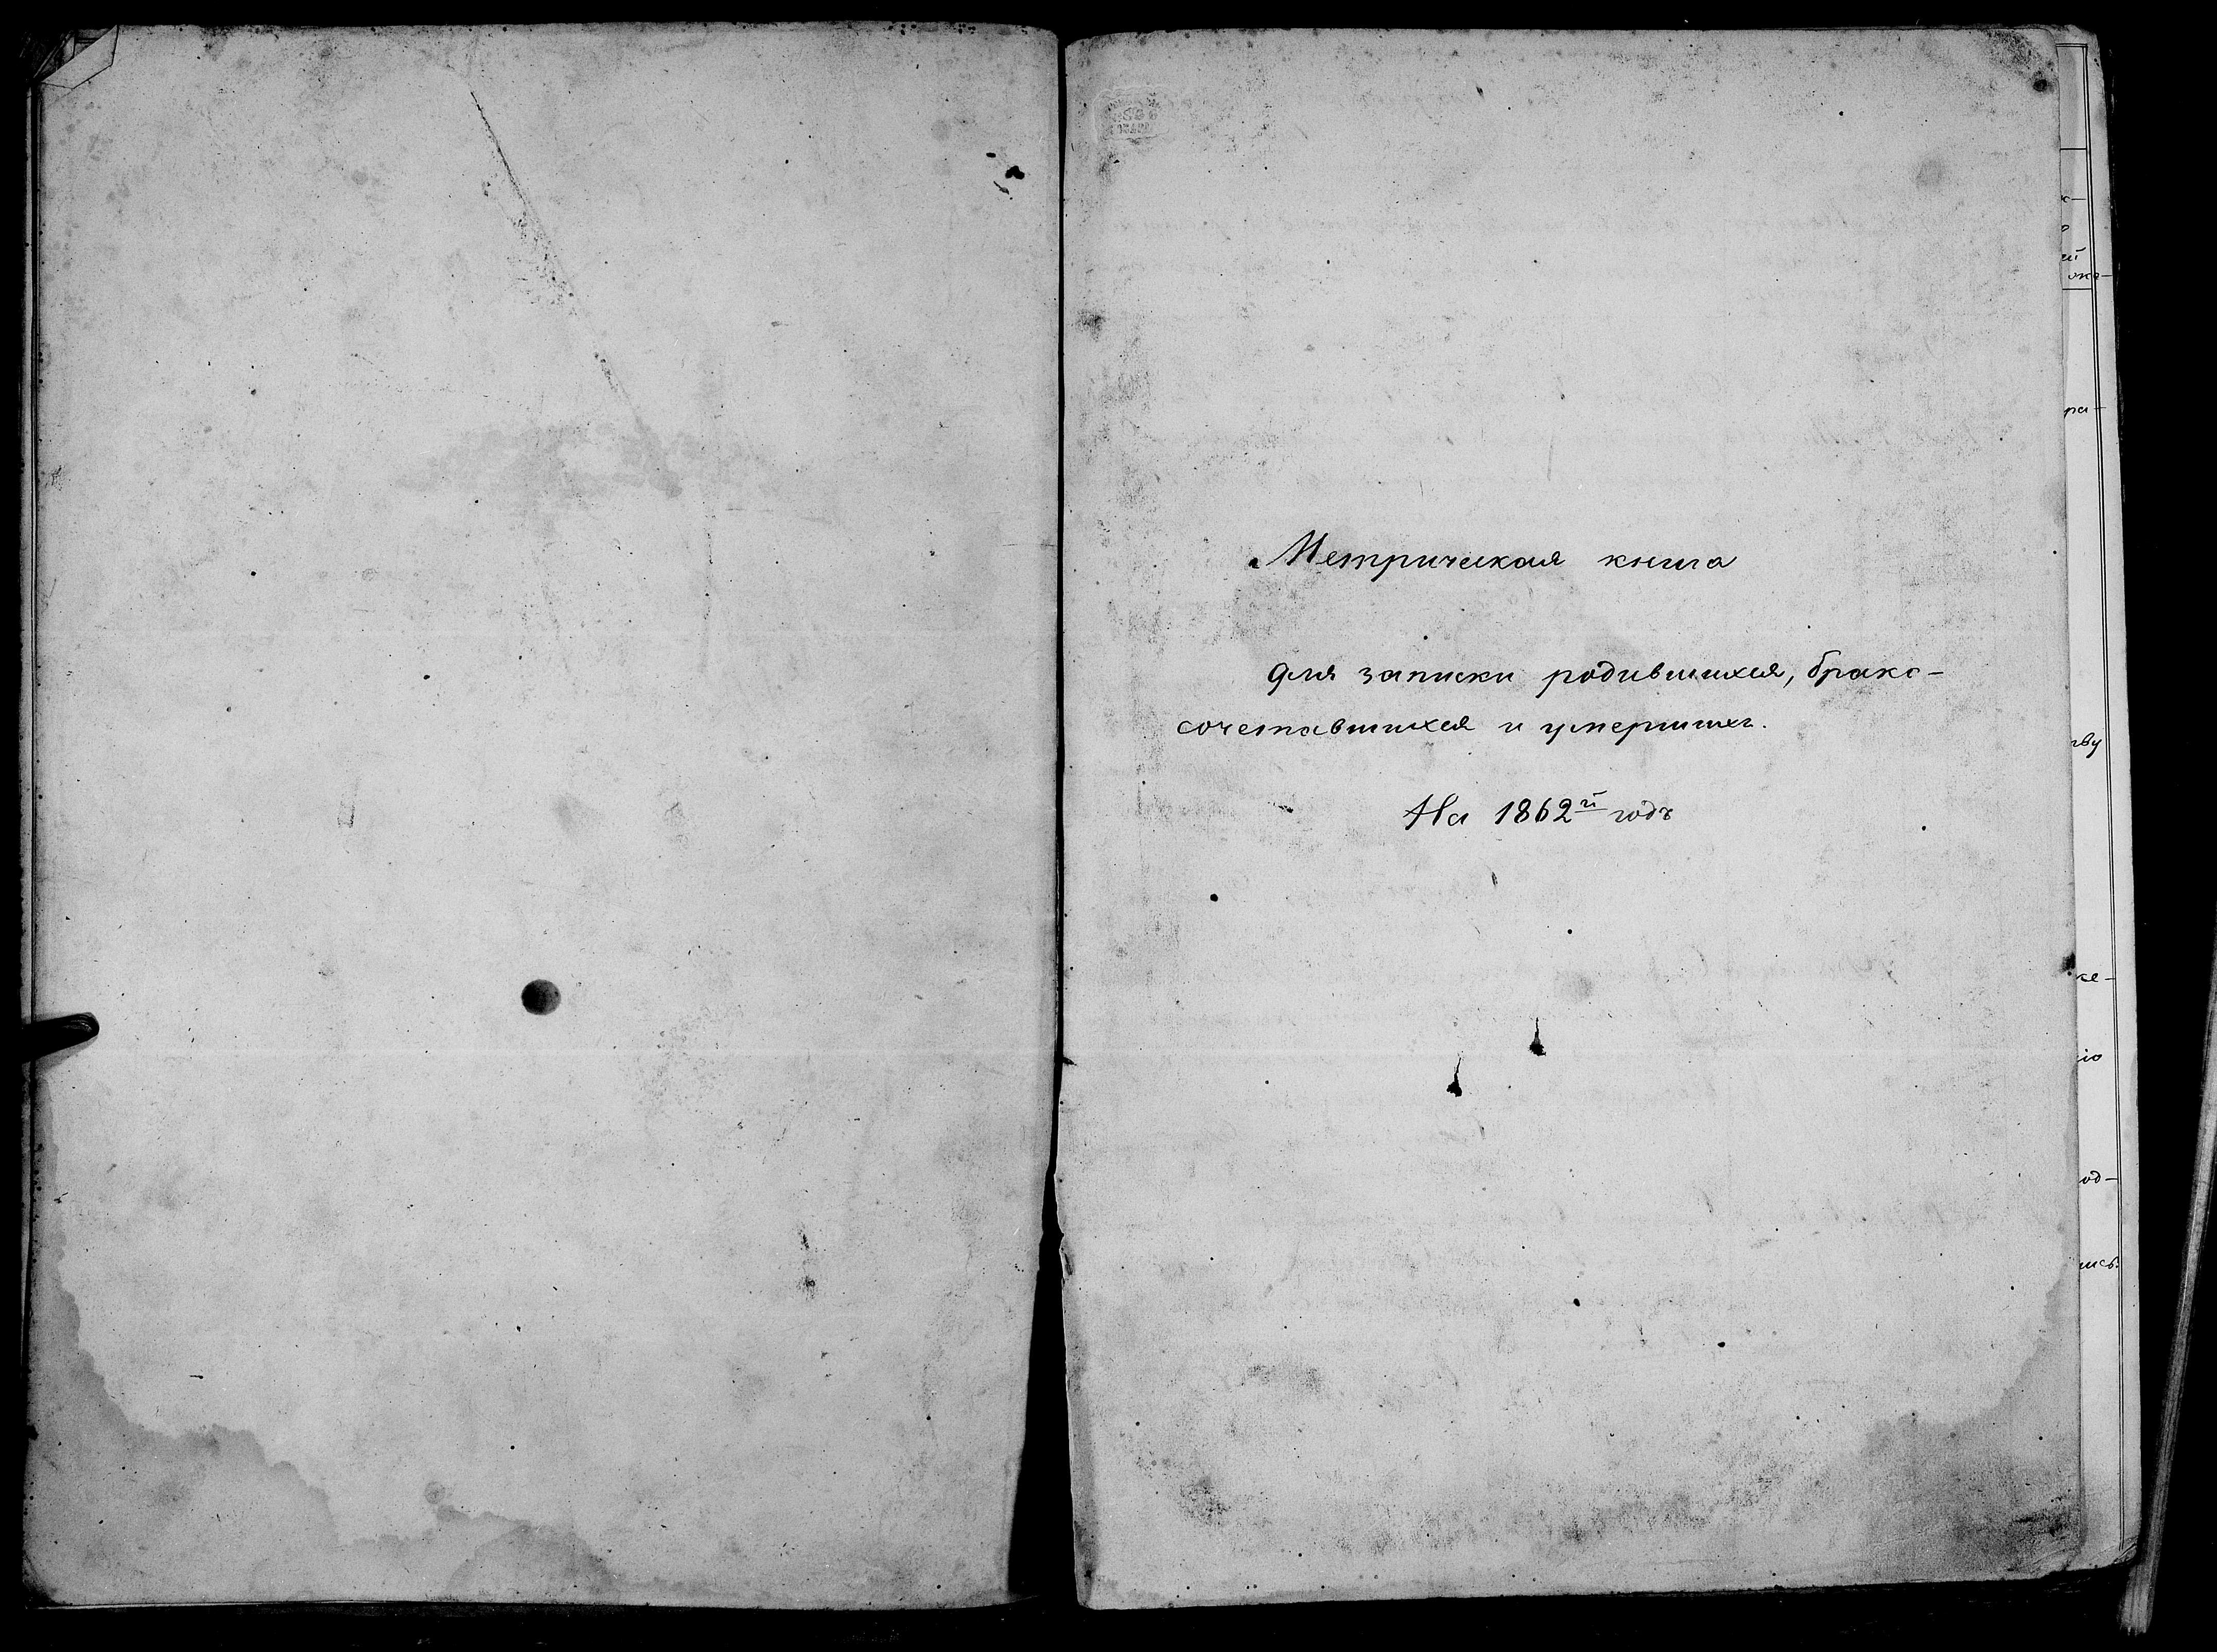 Метрическая книга
для записки родившихся, брако-
сочетавшихся и умершихъ.
На 1862й годъ
ра-
ву
ке-
іо
од-